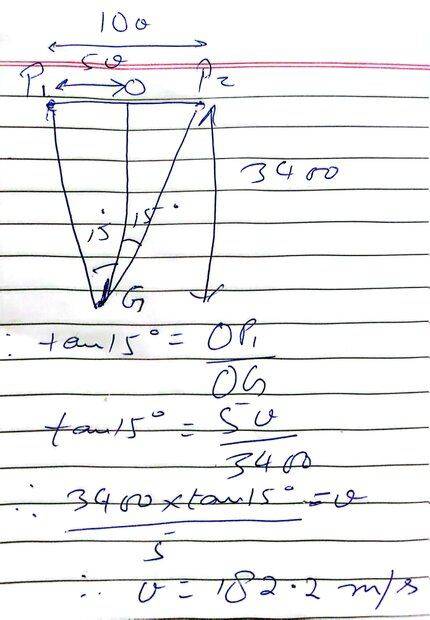 10v
5v
P₁ O P₂
3400
15° 15°
G
∴ tan15° = OP₁/OG
tan15° = 5v/3400
∴ 3400×tan15°/5 = v
∴ v = 182.2 m/s